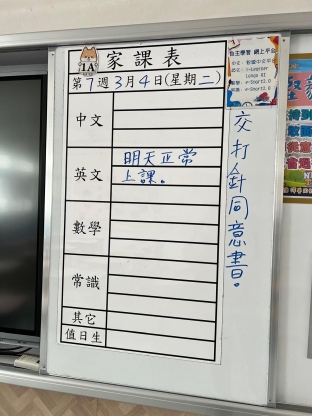 1A 家課表
第7週3月4日(星期二)
中文
英文
明天正常
上課。
數學
常識
其它
值日生
交打針同意書。
自主學習 網上平台